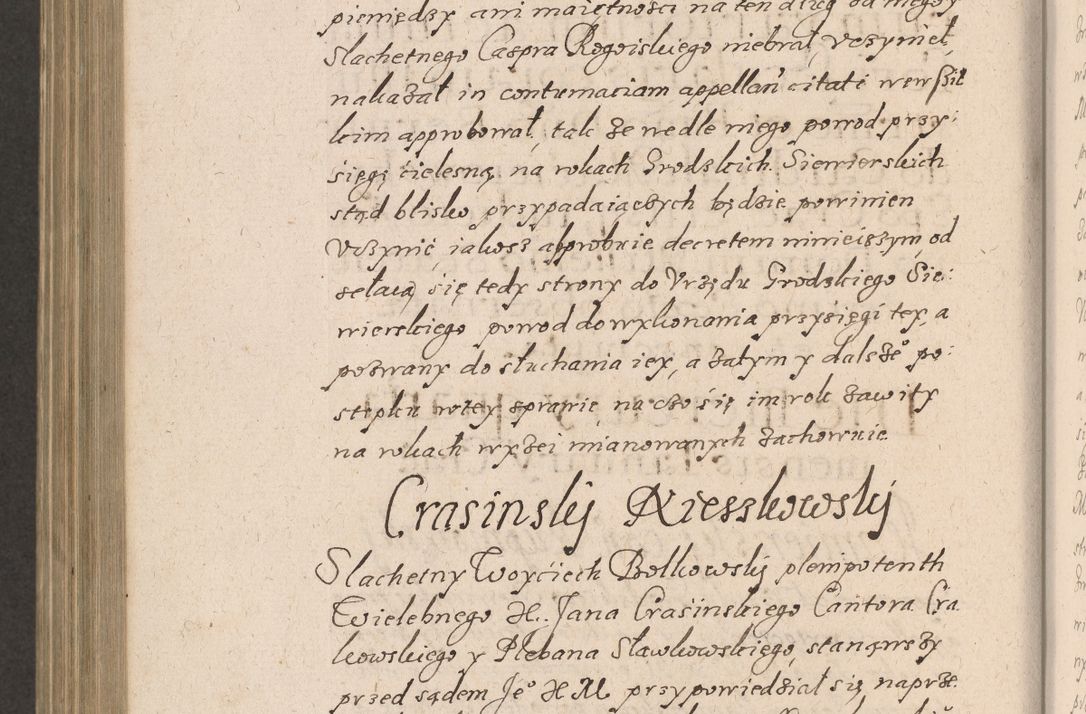 pieniędzy ani maiętnosci na ten dług od niego y
Slachetnego Caspra Rogoiskiego niebrał, vczynieł,
nakazał in contumaciam appellań citati wewszit
kim approbował, tak że wedle niego powod przy:
sięgę cielesną, na rokach Grodzkich Siewierskich
stąd blisko przypadaiączych będzie powinien
Vczynić, iakosz approbuie decretem ninieiszym, od
sełaią się tedy strony do Vrzędu Grodzkiego Sie:
wierskiego powod do wykonania przysięgi tey, a
pozwany do słuchania iey, a zatym y dalsże° po:
stępku wotey sprawie, na czo się im rok zawity
na rokach wyżei mianowanych zachowuie
Crasinskij Kieszkowskij
Slachetny Woyciech Bolkowskij plenipotenth
Wielebnego X. Jana Crasinskiego Cantora Cra
kowskiego y Plebana Sławkowskiego, stanąwszy
przed sądem Je° X M przypowiedział się, naprze.